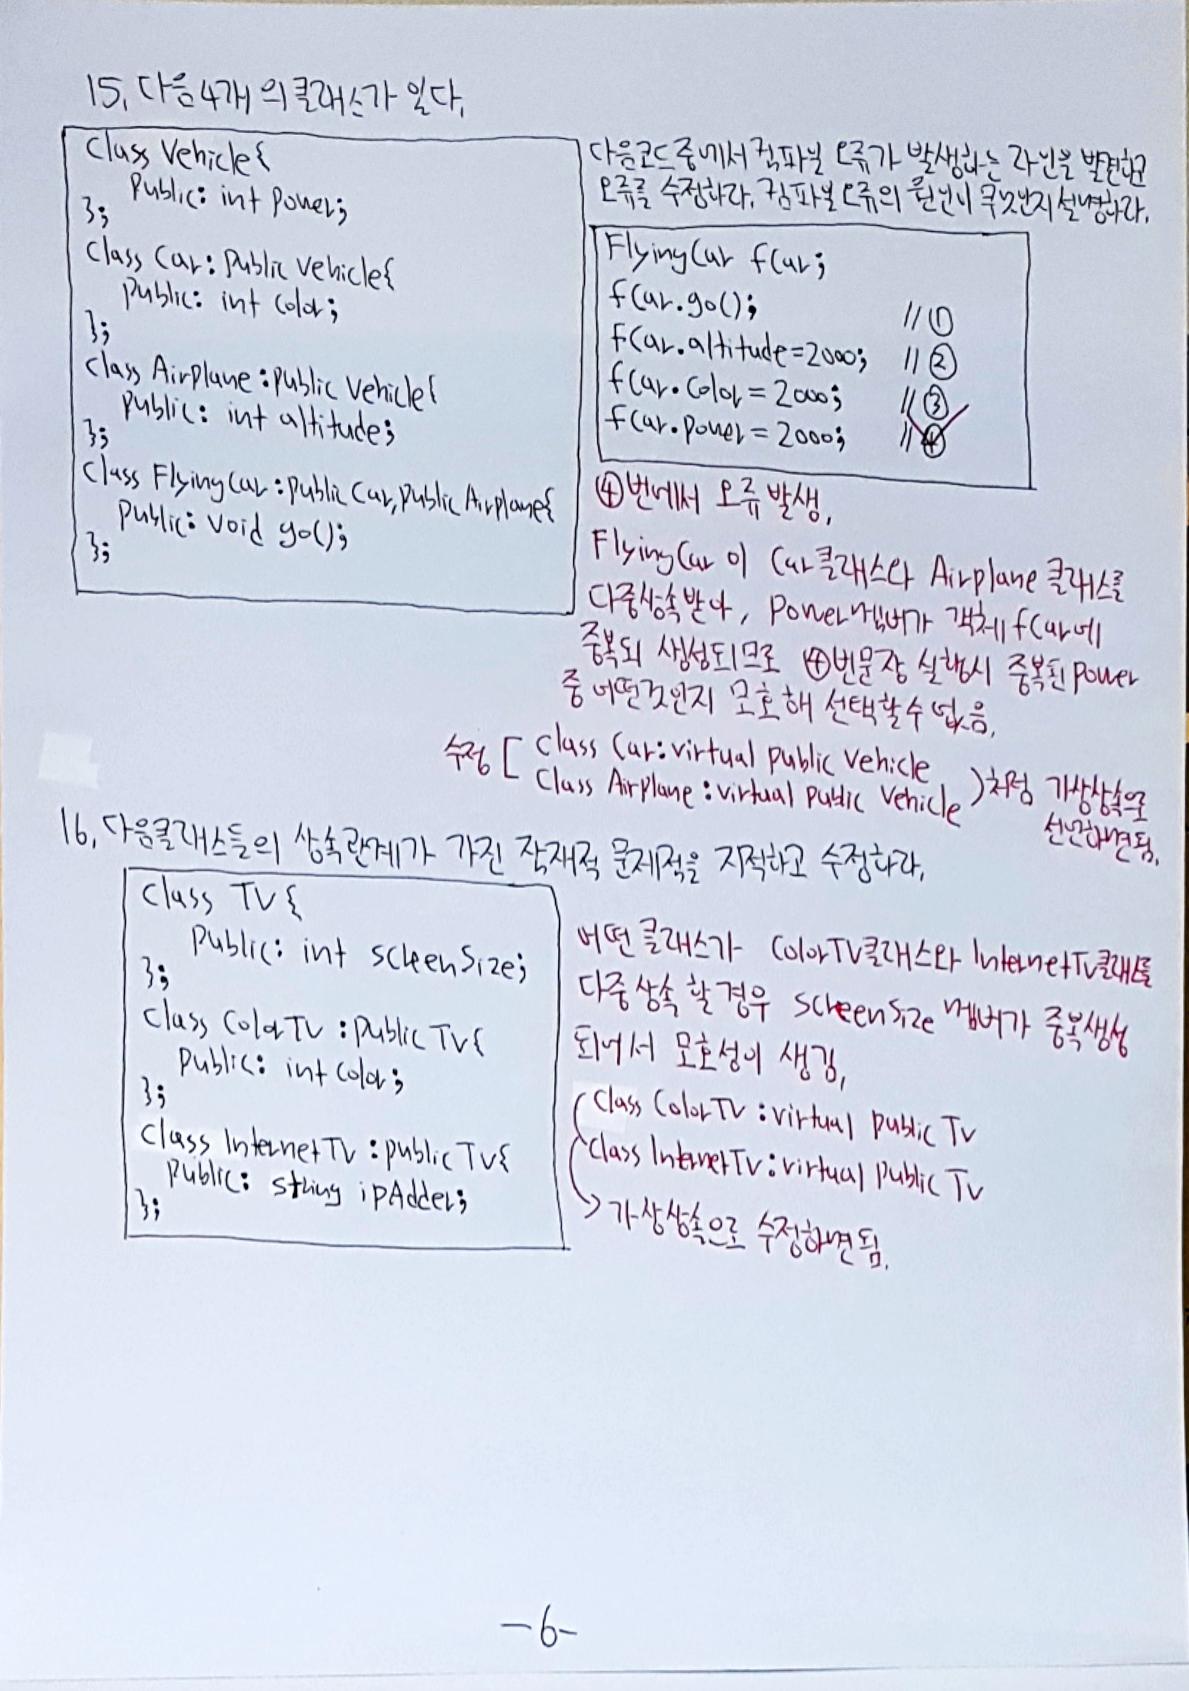 15. 다음 4개의 클래스가 있다.
class Vehicle{
public: int power;
};
class Car: public Vehicle{
public: int color;
};
class Airplane: public Vehicle{
public: int altitude;
};
class FlyingCar: public Car, public Airplane{
public: void go();
};
다음코드 중에서 컴파일 오류가 발생하는 라인을 발견하고
오류를 수정하라. 컴파일오류의 원인이 무엇인지 설명하라.
FlyingCar fCar;
fCar.go(); // ①
fCar.altitude=2000; // ②
fCar.color = 2000; // ③
fCar.power = 2000; // ④
④번에서 오류 발생.
FlyingCar이 Car클래스와 Airplane 클래스를
다중상속받아, power멤버가 객체 fCar에
중복되 생성되므로 ④번문장 실행시 중복된 power
중 어떤것인지 모호해 선택할수 없음.
수정 [ class Car: virtual public Vehicle
class Airplane: virtual public Vehicle ) 처럼 가상상속으로
선언하면됨.
16. 다음클래스들의 상속관계가 가진 잠재적 문제점을 지적하고 수정하라.
class TV{
public: int screenSize;
};
class ColorTV: public TV{
public: int color;
};
class InternetTV: public TV{
public: string ipAdder;
};
어떤 클래스가 ColorTV클래스와 InternetTV클래스를
다중상속 할 경우 screenSize 멤버가 중복생성
되어서 모호성이 생김.
class ColorTV: virtual public TV
class InternetTV: virtual public TV
→ 가상상속으로 수정하면됨.
-6-